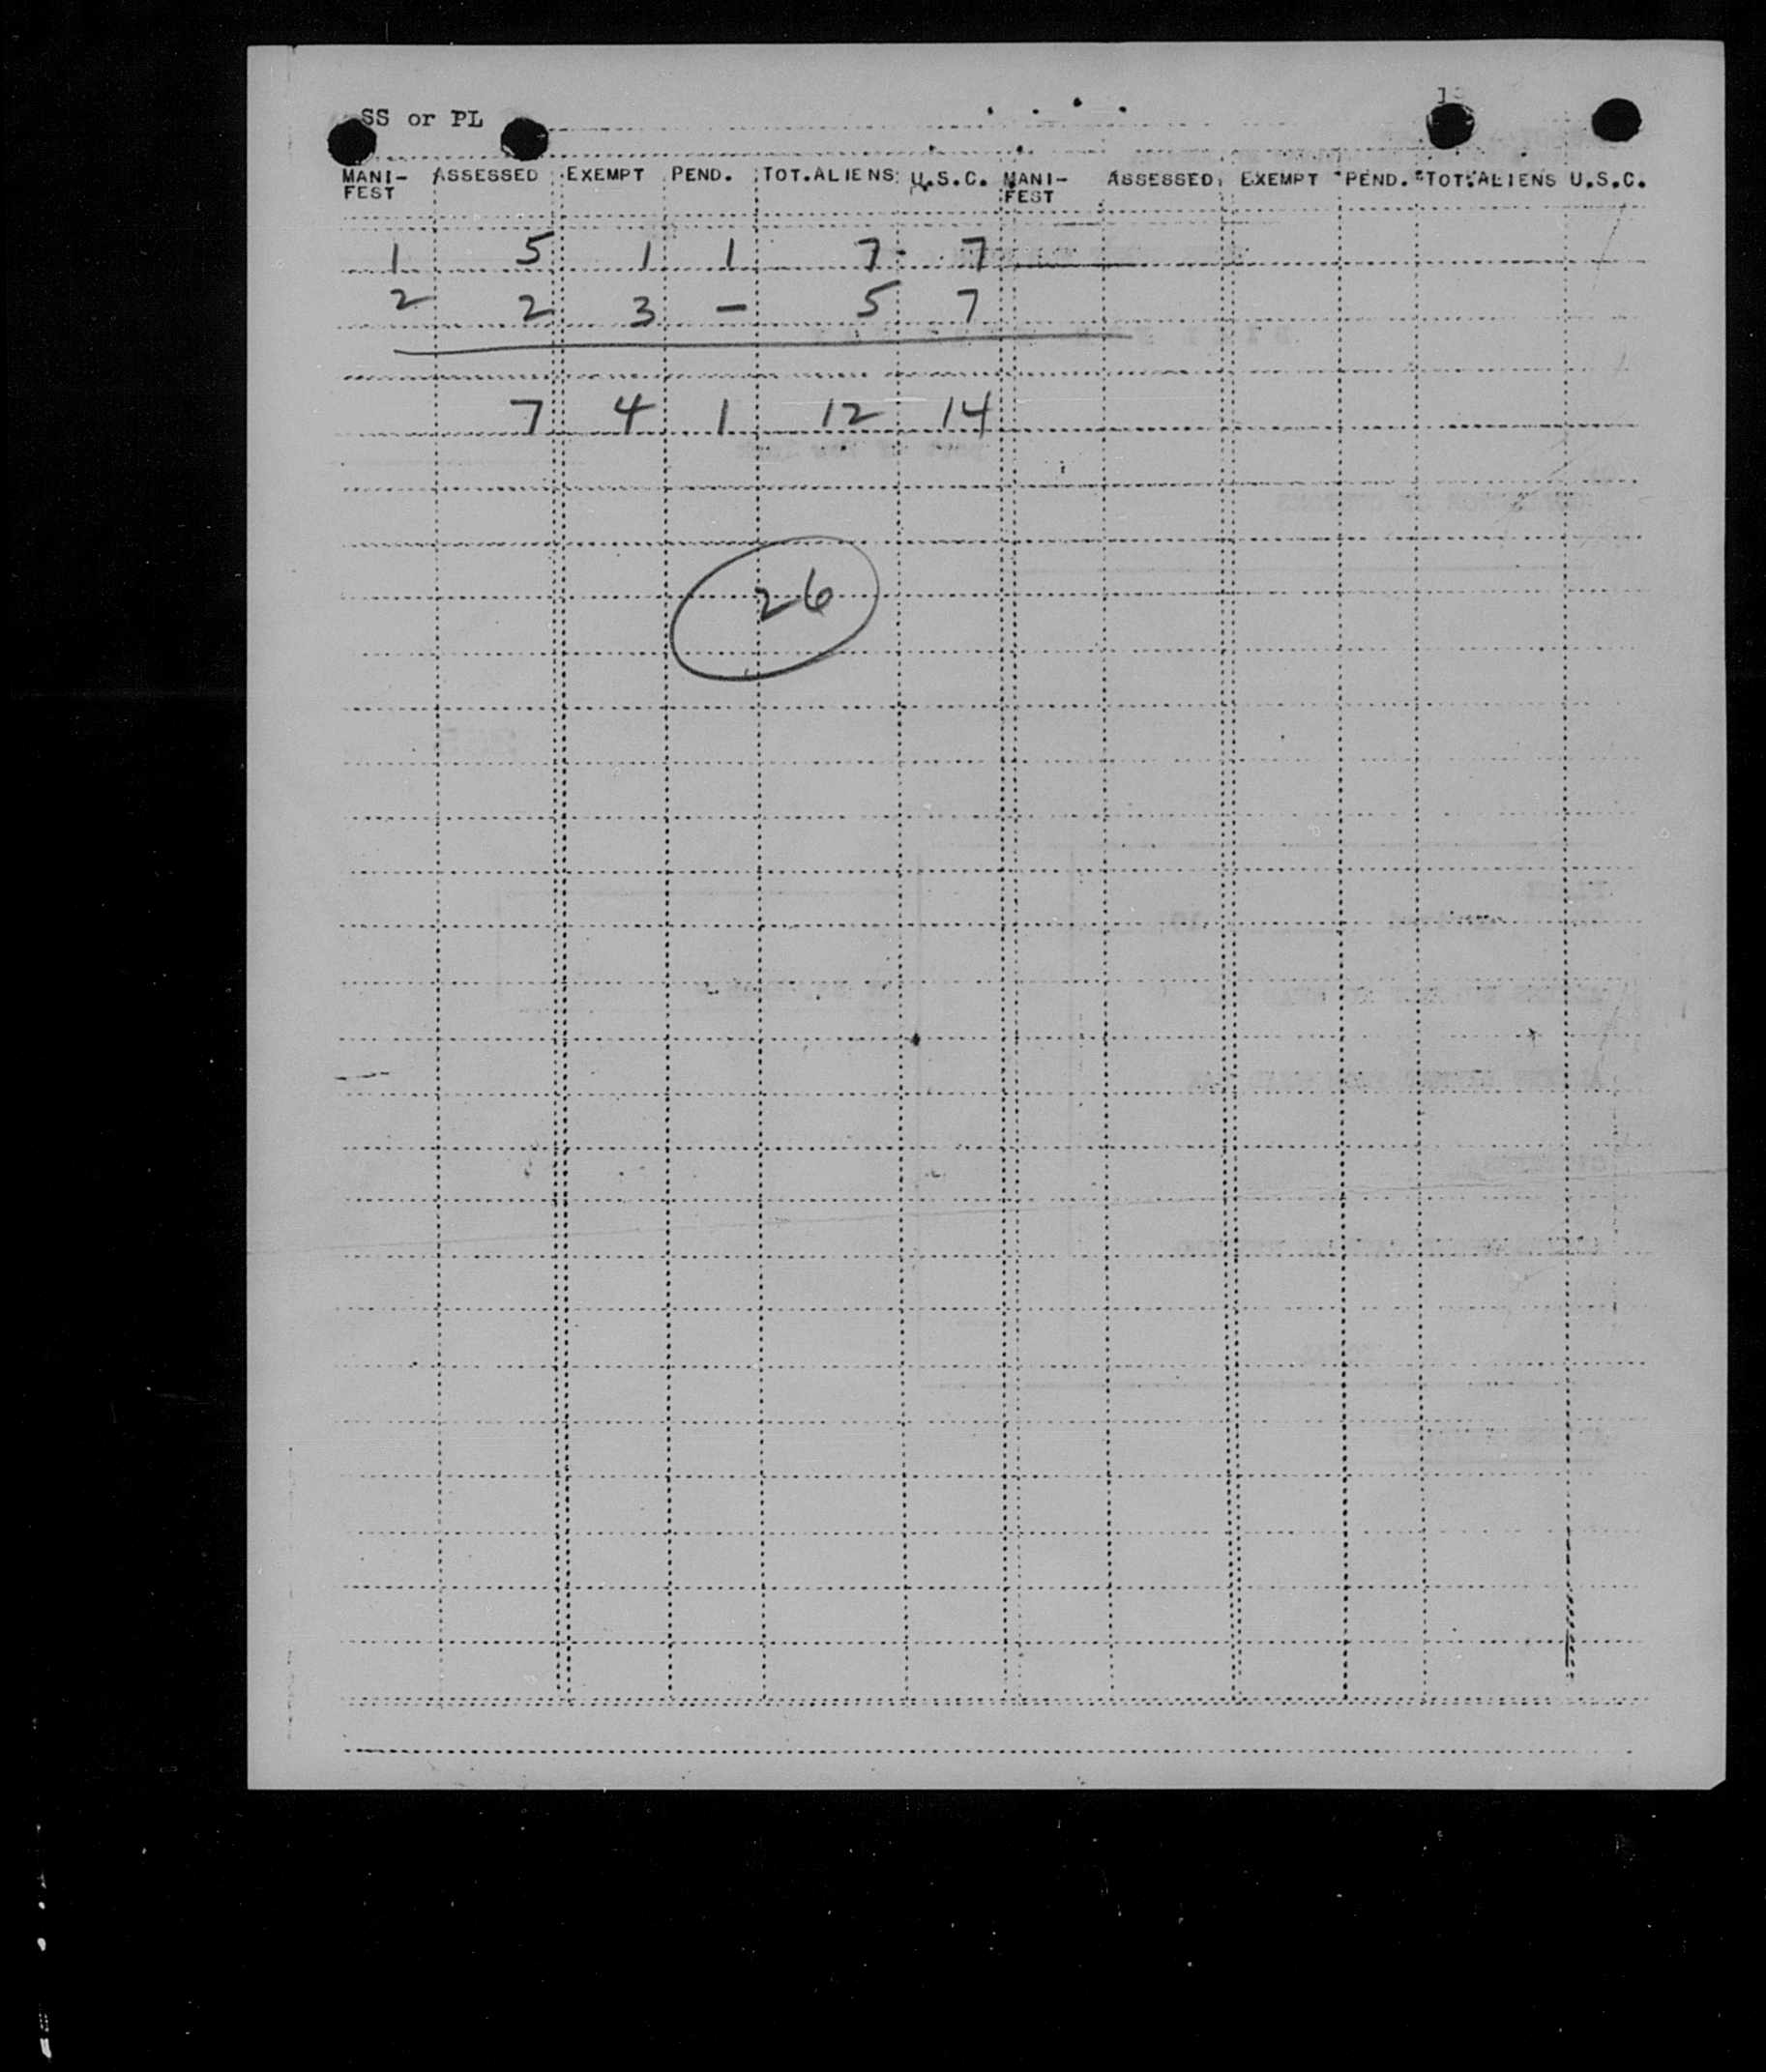 SS or PL
MANI-FEST ASSESSED EXEMPT PEND. TOT.ALIENS U.S.C. MANI-FEST ASSESSED EXEMPT PEND. TOT.ALIENS U.S.C.
1 5 1 1 7 7
2 2 3 — 5 7
7 4 1 12 14
26